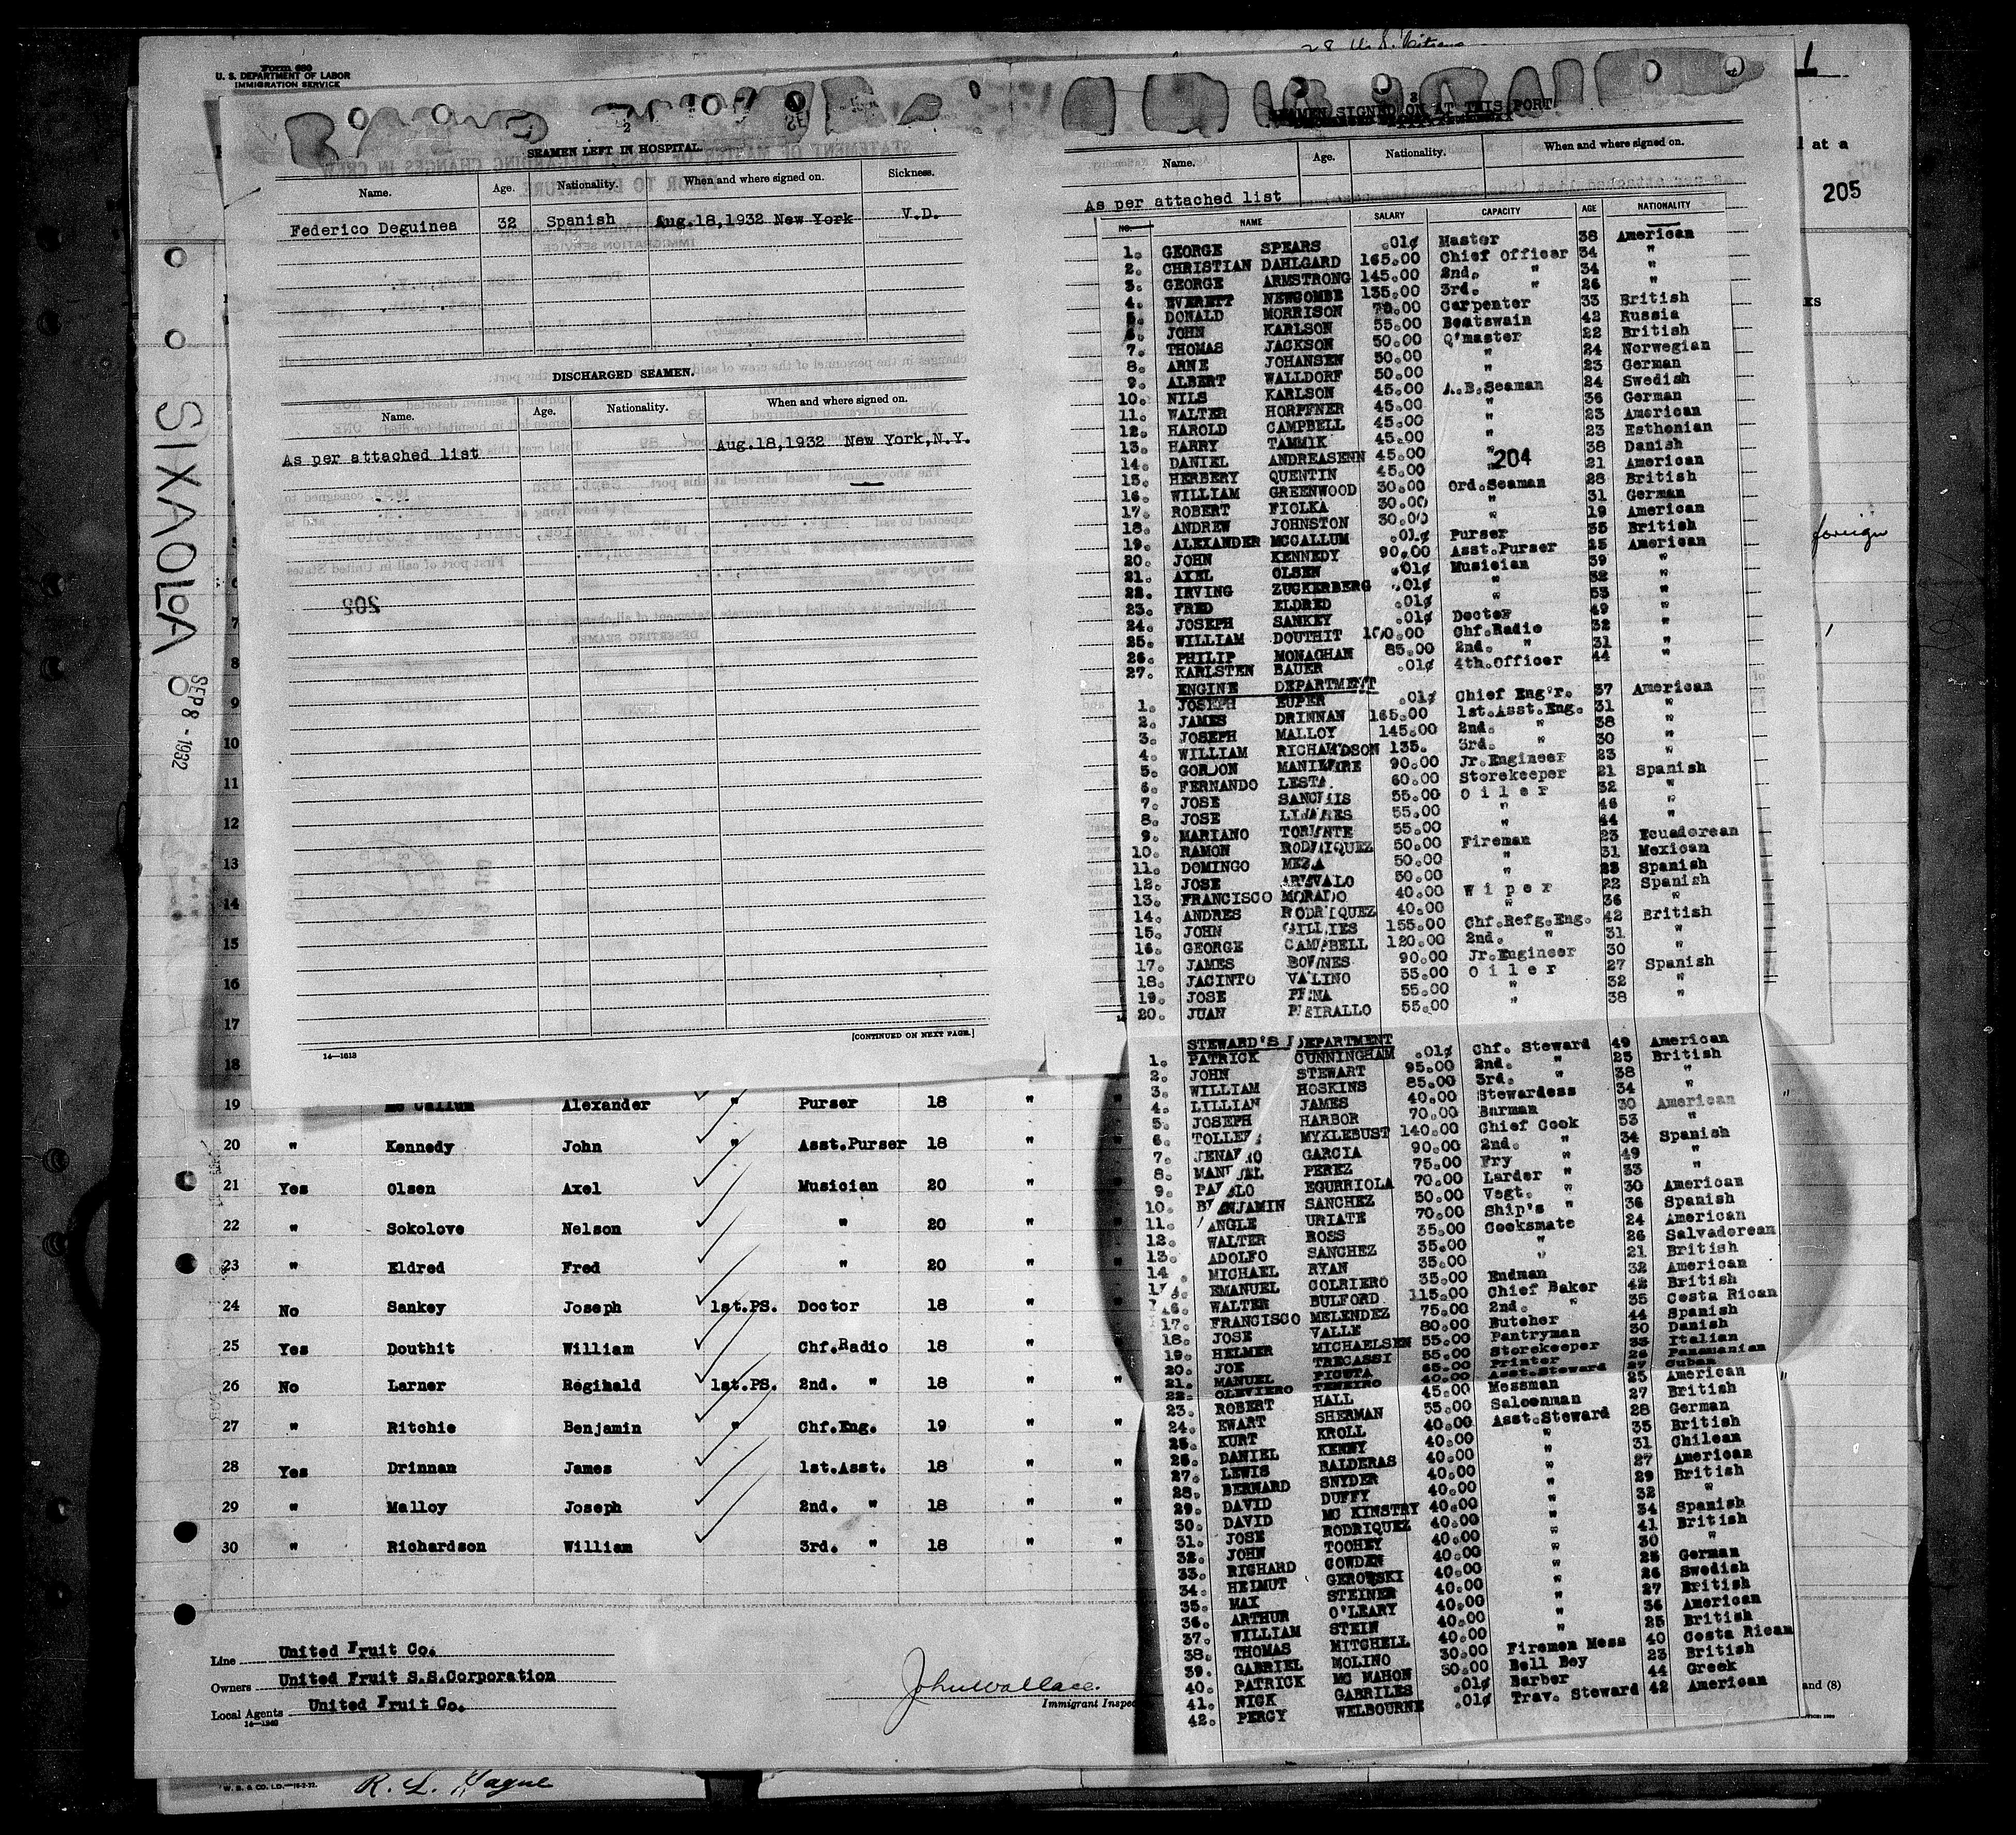 Form 689
U. S. DEPARTMENT OF LABOR
IMMIGRATION SERVICE
28 U.S. Citizens
1
2
SEAMEN LEFT IN HOSPITAL.
Name. Age. Nationality. When and where signed on. Sickness.
Federico Deguinea 32 Spanish Aug.18,1932 New York V.D.
DISCHARGED SEAMEN.
Name. Age. Nationality. When and where signed on.
As per attached list Aug.18,1932 New York,N.Y.
[CONTINUED ON NEXT PAGE.]
14—1613
3
SEAMEN SIGNED ON AT THIS PORT
Name. Age. Nationality. When and where signed on.
As per attached list
NO. NAME SALARY CAPACITY AGE NATIONALITY
1. GEORGE SPEARS .01¢ Master 38 American
2. CHRISTIAN DAHLGARD 165.00 Chief Officer 34 "
3. GEORGE ARMSTRONG 145.00 2nd. " 34 "
4. EVERETT NEWCOMBE 135.00 3rd. " 26 "
5. DONALD MORRISON 70.00 Carpenter 33 British
6. JOHN KARLSON 55.00 Boatswain 42 Russia
7. THOMAS JACKSON 50.00 Q'master 22 British
8. ARNE JOHANSEN 50.00 " 24 Norwegian
9. ALBERT WALLDORF 50.00 " 23 German
10. NILS KARLSON 45.00 A.B.Seaman 24 Swedish
11. WALTER HORPFNER 45.00 " 36 German
12. HAROLD CAMPBELL 45.00 " 23 American
13. HARRY TAMMIK 45.00 " 23 Esthonian
14. DANIEL ANDREASENN 45.00 " 38 Danish
204
15. HERBERY QUENTIN 45.00 " 21 American
16. WILLIAM GREENWOOD 30.00 Ord.Seaman 28 British
17. ROBERT FIOLKA 30.00 " 31 German
18. ANDREW JOHNSTON 30.00 " 19 American
19. ALEXANDER MCCALLUM .01¢ Purser 35 British
20. JOHN KENNEDY 90.00 Asst.Purser 25 American
21. AXEL OLSEN .01¢ Musician 39 "
22. IRVING ZUCKERBERG .01¢ " 32 "
23. FRED ELDRED .01¢ " 53 "
24. JOSEPH SANKEY .01¢ Doctor 49 "
25. WILLIAM DOUTHIT 100.00 Chf.Radio 32 "
26. PHILIP MONAGHAN 85.00 2nd. " 31 "
27. KARLSTEN BAUER .01¢ 4th.Officer 44 "
ENGINE DEPARTMENT
1. JOSEPH EUPER .01¢ Chief Eng'r. 37 American
2. JAMES DRINNAN 165.00 1st.Asst.Eng. 31 "
3. JOSEPH MALLOY 145.00 2nd. " 38 "
4. WILLIAM RICHARDSON 135. 3rd. " 30 "
5. GORDON 90.00 Jr.Engineer 23 "
6. FERNANDO LESTA 60.00 Storekeeper 21 Spanish
7. JOSE SANCHIS 55.00 Oiler 32 "
8. JOSE LINARES 55.00 " 46 "
9. MARIANO TORVNTE 55.00 " 44 "
10. RAMON RODRIQUEZ 50.00 Fireman 23 Ecuadorean
11. DOMINGO MEZA 50.00 " 31 Mexican
12. JOSE AREVALO 50.00 " 23 Spanish
13. FRANCISCO MORADO 40.00 Wiper 22 Spanish
14. ANDRES RODRIQUEZ 40.00 " 36 "
15. JOHN GILLIES 155.00 Chf.Refg.Eng. 42 British
16. GEORGE CAMPBELL 120.00 2nd. " 31 "
17. JAMES BOWNES 90.00 Jr.Engineer 30 "
18. JACINTO VALINO 55.00 Oiler 27 Spanish
19. JOSE PENA 55.00 " 32 "
20. JUAN PIEIRALLO 55.00 " 38 "
STEWARD'S DEPARTMENT
1. PATRICK CUNNINGHAM .01¢ Chf. Steward 49 American
2. JOHN STEWART 95.00 2nd. " 25 British
3. WILLIAM HOSKINS 85.00 3rd. " 38 "
4. LILLIAN JAMES 40.00 Stewardess 34 "
5. JOSEPH HARBOR 70.00 Barman 30 American
6. MYKLEBUST 140.00 Chief Cook 53 "
7. JENARO GARCIA 90.00 2nd. " 34 Spanish
8. MANUEL PEREZ 75.00 Fry " 49 "
9. PABLO EGURRIOLA 70.00 Larder " 33 "
10. BENJAMIN SANCHEZ 50.00 Vegt. " 30 American
11. ANGLE URIATE 70.00 Ship's " 36 Spanish
12. WALTER ROSS 35.00 Cooksmate 24 American
13. ADOLFO SANCHEZ 35.00 " 26 Salvadorean
14. MICHAEL RYAN 35.00 " 21 British
15. EMANUEL COLRIERO 35.00 Endman 32 American
16. WALTER BULFORD 115.00 Chief Baker 42 British
17. FRANCISCO MELENDEZ 75.00 2nd. " 35 Costa Rican
18. JOSE VALLE 80.00 Butcher 44 Spanish
19. HELMER MICHAELSEN 55.00 Pantryman 30 Danish
20. JOE TRECASSI 55.00 Storekeeper 33 Italian
21. MANUEL PICOTA 65.00 Printer 26 Panamanian
22. OLEVIERO TENEIRO 40.00 Asst.Steward 27 Cuban
23. ROBERT HALL 45.00 Messman 25 American
24. EWART SHERMAN 55.00 Saloonman 27 British
25. KURT KROLL 40.00 Asst.Steward 28 German
26. DANIEL KENNY 40.00 " 35 British
27. LEWIS BALDERAS 40.00 " 31 Chilean
28. BERNARD SNYDER 40.00 " 27 American
29. DAVID DUFFY 40.00 " 29 British
30. DAVID MC KINSTRY 40.00 " 32 "
31. JOSE RODRIQUEZ 40.00 " 34 Spanish
32. JOHN TOOHEY 40.00 " 41 British
33. RICHARD COWDEN 40.00 " 30 "
34. HELMUT GEROWSKI 40.00 " 25 German
35. MAX STEINER 40.00 " 26 Swedish
36. ARTHUR O'LEARY 40.00 " 27 British
37. WILLIAM STEIN 40.00 " 36 American
38. THOMAS MITCHELL 40.00 " 25 British
39. GABRIEL MOLINO 30.00 Firemen Mess 40 Costa Rican
40. PATRICK MC MAHON 30.00 Bell Boy 23 British
41. NICK GABRILES .01¢ Barber 44 Greek
42. PERCY WELBOURNE .01¢ Trav. Steward 42 American
l at a
205
foreign
and (8)
SIXAOLA
SEP 8 - 1932
203
6
7
8
9
10
11
12
13
14
15
16
17
18
19 Mc Callum Alexander " Purser 18 " "
20 " Kennedy John " Asst.Purser 18 " "
21 Yes Olsen Axel Musician 20 "
22 " Sokolove Nelson " 20 "
23 " Eldred Fred " 20 "
24 No Sankey Joseph 1st.PS. Doctor 18 "
25 Yes Douthit William Chf.Radio 18 "
26 No Larner Reginald 1st.PS. 2nd. " 18 " "
27 " Ritchie Benjamin " Chf.Eng. 19 " "
28 Yes Drinnan James 1st.Asst. 18 " "
29 " Malloy Joseph 2nd. " 18 " "
30 " Richardson William 3rd. " 18 " "
Line United Fruit Co.
Owners United Fruit S.S.Corporation
Local Agents United Fruit Co.
14—1240
John Wallace.
Immigrant Inspe
W. B. & CO. LD.—16-2-32.
R. L. Hague